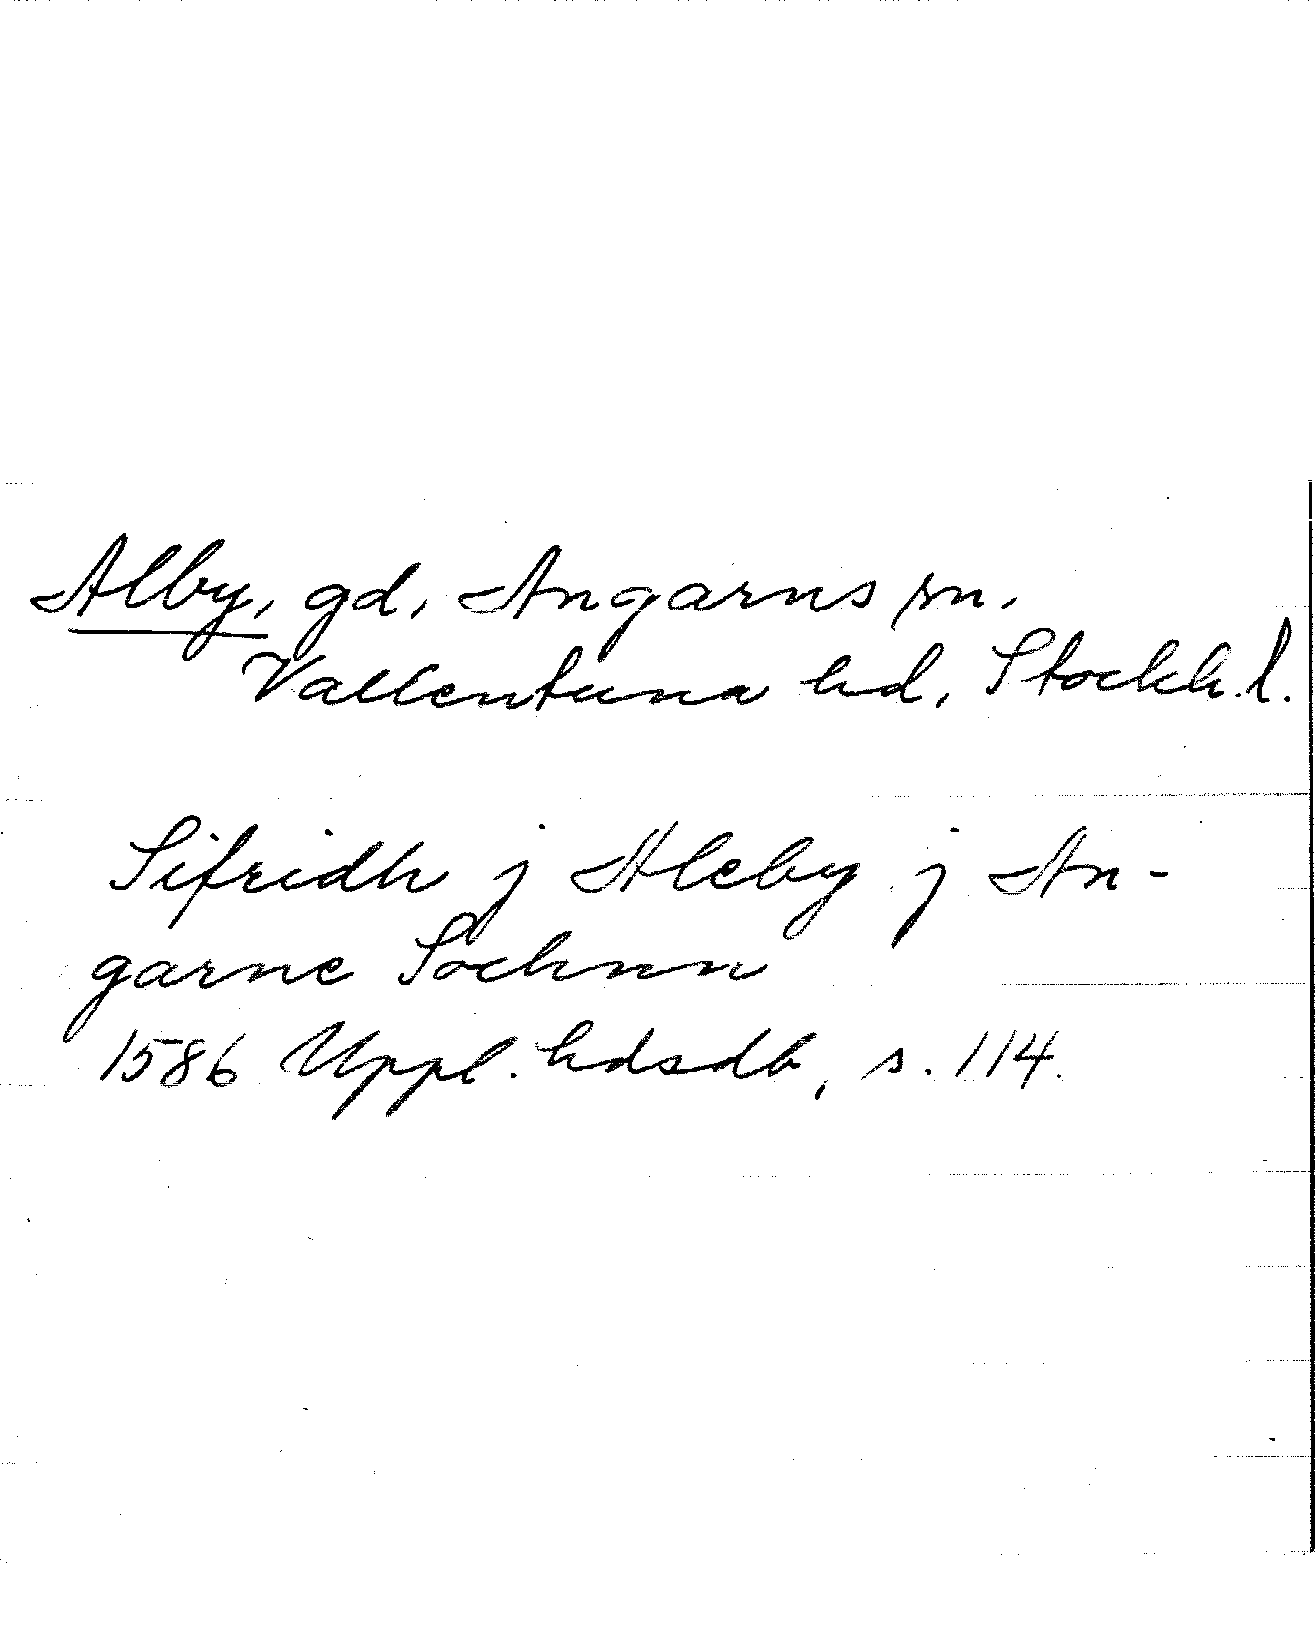 Alby, gd, Angarns sn.
Vallentuna hd, Stockh. l.
Sifridh j Aleby j An-
garne Sochnn
1586 Uppl. hdsdb, s. 114.